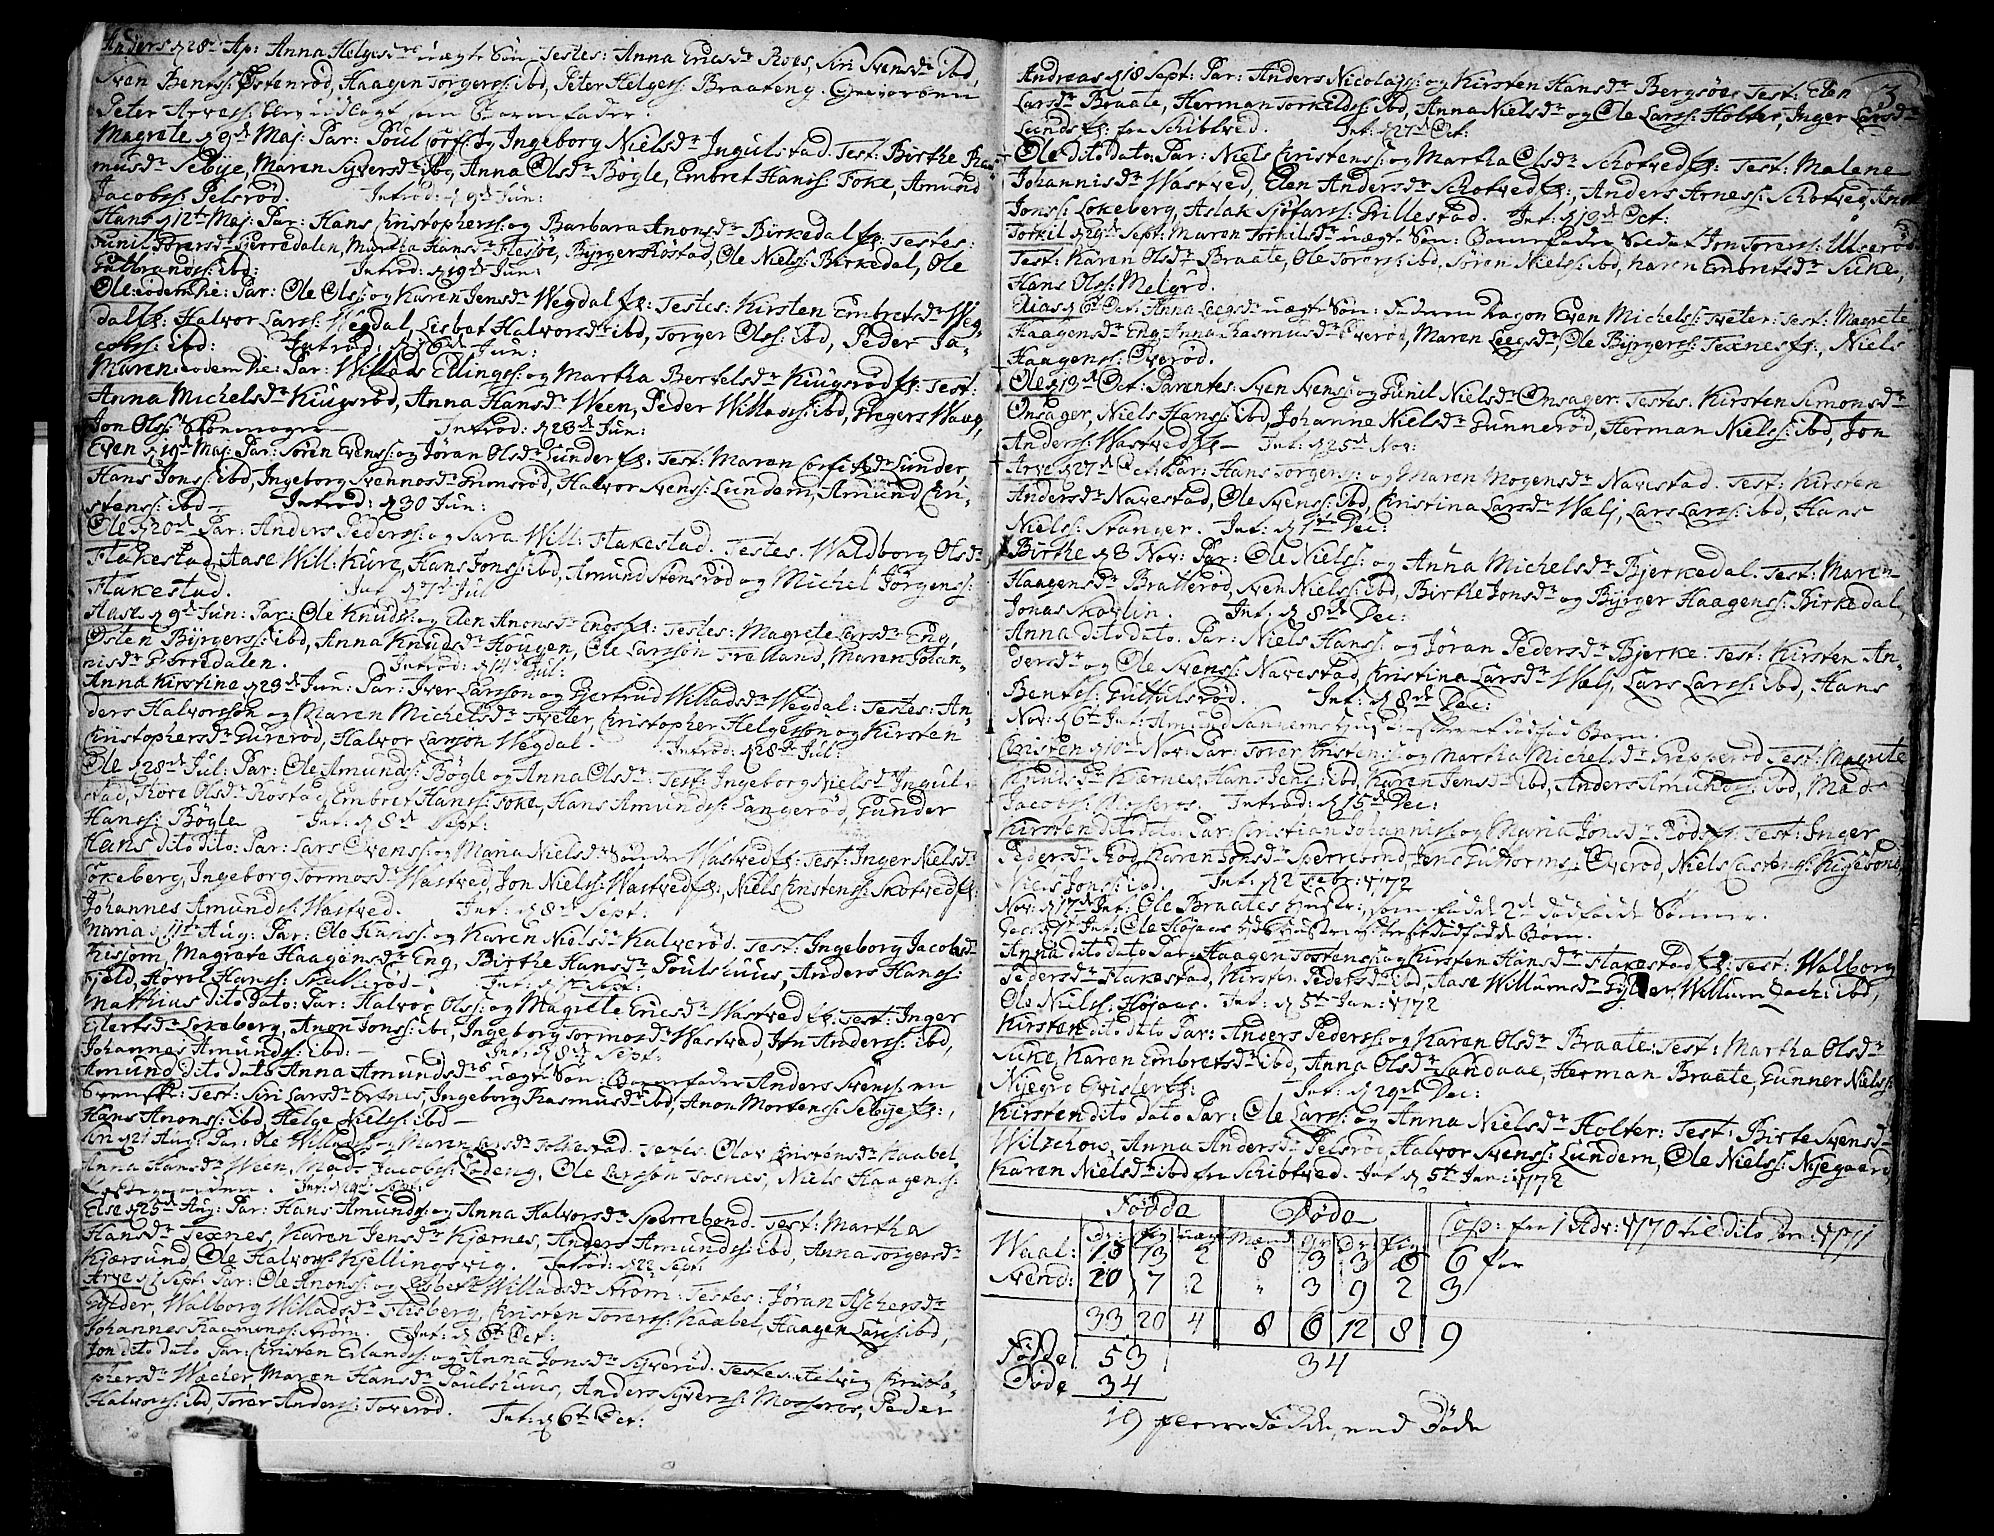 Anders d 28de Ap: Anna Helgesdr uægte Søn Testes: Anna Ericsdr Roes, Siri Svensdr ibd,
Sven Bentss: Østenrød, Haagen Torgerss: ibd, Peter Helgess: Braateng.
Peter Arvess: blev udlagt som Barnefader.
Magrete d 9de Maj: Par: Poul og Ingeborg Nielsdr Ingulstad. Test: Birthe Ras-
musdr Sebye, Maren Syversdr ibd, Anna Olsdr Bøgle, Embret Hanss: Foke, Amund
Jacobss: Pelsrød. Introd: d 9de Jun:
Hans d 12te Maj: Par: Hans Cristopherss: og Barbara Anonsdr Birkedal fr: Testes:
Gunil Torersdr Sperredalen, Martha Hansdr Flesøe, Byrger Rostad, Ole Nielss: Birkedal, Ole
Gulbrandss: ibd: Introd: d 19de Jun:
Ole: eodem Die: Par: Ole Olss: og Karen Jensdr Wegdal fr: Testes: Kirsten Embretsdr Weg-
dal fr: Halvor Larss: Wegdal, Lisbet Halvorsdr ibd, Torger Olss: ibd, Peder Ja-
cobss: ibd: Introd: d 16de Jun:
Maren: eodem Die: Par: Willads Ellingss: og Martha Bertelsdr Kiugsrød fr: Test:
Anna Michelsdr Kiugsrød, Anna Hansdr Ween, Peder Willadss: ibd, Pregers Waag,
Jon Olss: Skoemager Introd: d 23de Jun:
Even d 19de Maj: Par: Søren Evenss: og Jøran Olsdr Lunder fr. Test: Maren Lunder,
Hans Jonss: ibd, Ingeborg Svennesdr Grimsrød, Halvor Svenss: Lundem, Amund Cri-
stenss: ibd - Introd: d 30 Jun:
Ole d 20de Par: Anders Pederss: og Sara Will: Flakestad. Testes: Waldborg Olsdr
Flakestad, Aase Will: Kure, Hans Jonss: ibd, Amund Stensrød og Michel Jørgenss:
Flakestad. Int: d 7de Jul
Aase d 9de Jun: Par: Ole Knudss: og Elen Anonsdr Engs fr: Testes: Magrete Larsdr Eng,
Østen Byrgerss: ibd, Anna Knudsdr Hougen, Ole Larssøn Trelland, Maren Johan-
nisdr Sperredalen. Introd: d 14de Jul:
Anna Kirstina d 23de Jun: Par: Iver Larsson og Giertrud Willadsdr Wegdal: Testes: An-
ders Halvorssøn og Maren Michelsdr Tveter, Cristopher Helgessøn og Kirsten
Cristophersdr Gurerød, Halvor Larsøn Wegdal. Introd: d 28de Jul:
Ole d 28de Jul: Par: Ole Amundss: Bøgle og Anna Olsdr: Test: Ingeborg Nielsdr Ingul-
stad, Tore Olsdr Rostad, Embret Hanss: Foke, Hans Amundss: Langerød, Gunder
Hanss: Bøgle Int: d 8de Sept:
Hans dito Dito: Par: Lars Evenss: og Maria Nielsdr Sønder Wastved fr: Test: Inger Nielsdr
Løkeberg, Ingeborg Tormosdr Wastved, Jon Nielss: Wastved fr:, Niels Cristenss: Skotved fr:
Johannes Amundss: Wastved. Int: d 8de Sept:
Maria d 11te Aug: Par: Ole Hanss: og Karen Nielsdr Kalverød. Test: Ingeborg Jacobsdr
Kisiom, Magrete Haagensdr Eng, Birthe Hansdr Poulshuus, Anders Hanss:
Fjeld, Horvel Hanss: Skallerød - Int: d Sept:
Mathius dito Dato: Par: Halvor Olss: og Magrete Ericsdr Wastved fr. Test: Inger
Ejlertsdr Løkeberg, Anon Jonss: ibd, Ingeborg Tormosdr Wastvad, Jon Anderss: ibd,
Johannes Amundss: ibd: - Int: d 8de Sept:
Amund dito dato Anna Amundsdrs uægte Søn: Barnefader Anders Svenss: en
Svenske: Test: Siri Larsdr Ertnes, Ingeborg Rasmusdr ibd, Anon Mortenss: Sebye fr:,
Hans Anonss: ibd, Helge Nielss: ibd -
Siri d 21 Aug: Par: Ole Willadss: og Maren Larsdr Tolkestad. Testes: Olav Cristensdr Kaabel,
Anna Hansdr Ween, Mads Jacobss: Lødeng, Ole Larssøn Tosnes, Niels Haagenss:
Int: d 19de Sept:
Else d 25de Aug: Par: Hans Amundss: og Anna Halvorsdr Sperrebond. Test: Martha
Hansdr Texnes, Karen Jensdr Kjærnes, Anders Amundss: ibd, Anna Torgersdr
Kjærsund, Ole Halvorss: Kjellingsvig. Introd: d 22 Sept:
Arve d 1 Sept: Par: Ole Anonss: og Lisbeth Willadsdr Strøm: Testes: Jøran Aschersdr
Gylder, Walborg Willadsdr Hisberg, Cristen Torerss: Kaabel, Haagen Larss: ibd,
Johannes Raamonss: Strøm. Int: d 6te Oct:
Jon dito dato Par: Cristen Erlandss: og Anna Jonsdr Syverød. Testes: Helvig Cristo-
phersdr Wæcher, Maren Hansdr Poulshuus, Anders Syverss: Mosseros, Peder
Halvorss: ibd, Torer Anderss: Toverød. Int: d 6te Oct:
3
Andreas d 18 Sept: Par: Anders Nicolajss: og Kirsten Hansdr Bergsøe. Test: Elen
Larsdr Braate, Herman Torkeldss: ibd, Anna Nielsdr og Ole Larss: Holter, Inger Larsdr
Lunds fr: fra Schibtved. Int: d 27de Oct:
Ole dito dato. Par: Niels Cristenss: og Martha Olsdr Schotved fr: Test: Malene
Johannisdr Wastved, Elen Andersdr Schotved fr:, Anders Arness: Schotved, Anon
Jonss: Løkeberg, Aslak Sjøfarss: Grillestad. Int: d 13de Oct:
Torkil d 29de Sept: Maren Torkilsdr uægte Søn: Barnefader Soldat Jon Torerss: Ulserød.
Test: Karen Olsdr Braate, Ole Torerss: ibd, Søren Nielss: ibd, Karen Embretsdr Suke,
Hans Olss: Melgrd.
Elias d 6te Oct: Anna Leegsdr uægte Søn: Faderen Dragon Even Michelss: Tveter: Test: Magrete
Haagensdr Eng, Anna Rasmusdr Everød, Maren Leegsdr, Ole Byrgerss: Texnes fr:, Niels
Haagenss: Everød.
Ole d 13de Oct: Parentes: Sven Svenss: og Gunil Nielsdr Onsager. Testes: Kirsten Simonsdr
Onsager, Niels Hanss: ibd, Johanne Nielsdr Gunnerød, Herman Nielss: ibd, Jon
Anderss: Wastved fr - Int: d 25de Nov:
Arve d 27de Oct: Par: Hans Torgerss: og Maren Mogensdr Navestad. Test: Kirsten
Andersdr Navestad, Ole Svenss: ibd, Cristina Larsdr Wælj, Lars Larss: ibd, Hans
Nielss: Stanger. Int: d 1ste Dec:
Birthe d 3 Nov: Par: Ole Nielss: og Anna Michelsdr Bjerkedal. Test: Maren
Haagensdr Bratterød, Sven Nielss: ibd, Birthe Jonsdr og Byrger Haagenss: Birkedal,
Jonas Skovlin. Int: d 8de Dec:
Anna dito dato. Par: Niels Hanss: og Jøran Pedersdr Bjerke. Test: Kirsten An-
dersdr og Ole Svenss: Navestad, Cristina Larsdr Wælj, Lars Larss: ibd, Hans
Bentss: Gultulsrød. Int: d 8de Dec:
Nov: d 6te Int: Amund Sannems Hustru efter et dødfød Barn.
Cristen d 10de Nov: Par: Torer Cristenss: og Martha Michelsdr Grepperød Test: Magrete
Knudsdr Kjærnes, Hans Jenss: ibd, Karen Jensdr ibd, Anders Amundss: ibd, Mads
Jacobss: Mosseros. Introd: d 15de Dec:
Kirsten dito dato. Par: Cristian Johanniss: og Maria Jonsdr Rød fr: Test: Inger
Pedersdr Rød, Karen Jonsdr Sperrebond, Jens Guttormss: Everød, Niels Castenss: Kigebond,
Niels Jonss: ibd. Int: d 2 Febr: 1772
Nov: d 17de Int: Ole Braates Hustr: som fødde 2de dødfødde Sønner.
Dec: d 1ste Int: Ole Høsaas Hustrue efter et dødfødde Børn.
Anna dito dato Par: Haagen Tostenss: og Kirsten Hansdr Flakestad fr: Test: Walborg
Pedersdr Flakestad, Kirsten Pedersdr ibd, Aase Willumsdr Gylder, Willum Zach: ibd,
Ole Nielss: Høsaas. Int: d 5te Jan: 1772
Kirsten dito dato Par: Anders Pederss: og Karen Olsdr Braate: Test: Martha Olsdr
Suke, Karen Embretsdr ibd, Anna Olsdr Sandaae, Herman Braate, Gunner Nielss:
Nyegrd Int: d 29de Dec:
Kirsten dito dato Par: Ole Larss: og Anna Nielsdr Holter: Test: Birte Svensdr
Wilschow, Anna Andersdr Pelsrød, Halvor Svenss: Lundem, Ole Nielss: Nyegaard,
Karen Nielsdr ibd fra Schibtved. Int d 5te Jan: 1772
Fødde Døde
Dr: Pig uægt Mænd Qv: Dr: Pig Cop: fra 1 Adv: 1770 til dito Adv: 1771
Waal: 13 13 2 8 3 3 6 6 Par
Svend: 20 7 2 " 3 9 2 3
33 20 4 8 6 12 8 9
Fødde 53 34
Døde 34
19 fleere Fødde, end Døde